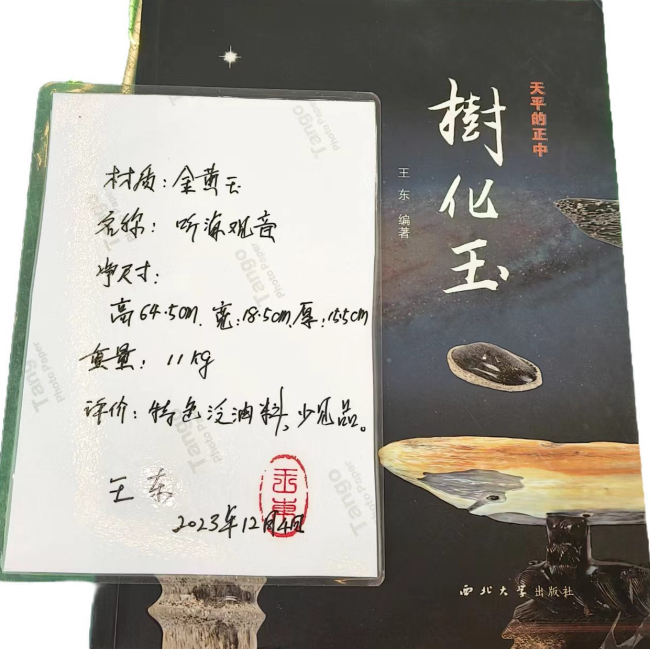 材质：金黄玉
名称：听海观音
净尺寸：
高64.5cm、宽：18.5cm、厚：15.5cm
重量：11kg
评价：特色泛油料、少见品。
王东
2023年12月4日
王東
天平的正中
樹化玉
王东 编著
西北大学出版社
Tango
Photo Paper
Tango
Photo Paper
Tango
Photo Paper
Tango
Photo Paper
Tango
Photo Paper